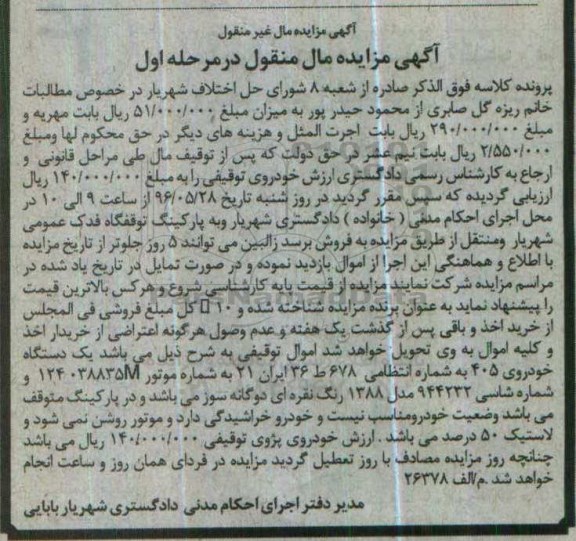 آگهی مزایده مال غیر منقول
آگهی مزایده مال منقول در مرحله اول
پرونده کلاسه فوق الذکر صادره از شعبه ۸ شورای حل اختلاف شهریار در خصوص مطالبات
خانم ریزه گل صابری از محمود حیدر پور به میزان مبلغ ۵۱/۰۰۰/۰۰۰ ریال بابت مهریه و
مبلغ ۲۹۰/۰۰۰/۰۰۰ ریال بابت اجرت المثل و هزینه های دیگر در حق محکوم لها ومبلغ
۲/۵۵۰/۰۰۰ ریال بابت نیم عشر در حق دولت که پس از توقیف مال طی مراحل قانونی و
ارجاع به کارشناس رسمی دادگستری ارزش خودروی توقیفی را به مبلغ ۱۴۰/۰۰۰/۰۰۰ ریال
ارزیابی گردیده که سپس مقرر گردید در روز شنبه تاریخ ۹۶/۰۵/۲۸ از ساعت ۹ الی ۱۰ در
محل اجرای احکام مدنی ( خانواده ) دادگستری شهریار وبه پارکینگ توقفگاه فدک عمومی
شهریار ومنتقل از طریق مزایده به فروش برسد زالبین می توانند ۵ روز جلوتر از تاریخ مزایده
با اطلاع و هماهنگی این اجرا از اموال بازدید نموده و در صورت تمایل در تاریخ یاد شده در
مراسم مزایده شرکت نمایند مزایده از قیمت پایه کارشناسی شروع و هرکس بالاترین قیمت
را پیشنهاد نماید به عنوان برنده مزایده شناخته شده و ۱۰ کل مبلغ فروشی فی المجلس
از خرید اخذ و باقی پس از گذشت یک هفته و عدم وصول هرگونه اعتراضی از خریدار اخذ
و کلیه اموال به وی تحویل خواهد شد اموال توقیفی به شرح ذیل می باشد یک دستگاه
خودروی ۴۰۵ به شماره انتظامی ۶۷۸ ط ۳۶ ایران ۲۱ به شماره موتور ۱۲۴۰۳۸۸۳۵M و
شماره شاسی ۹۴۴۲۳۲ مدل ۱۳۸۸ رنگ نقره ای دوگانه سوز می باشد و در پارکینگ متوقف
می باشد وضعیت خودرومناسب نیست و خودرو خراشیدگی دارد و موتور روشن نمی شود و
لاستیک ۵۰ درصد می باشد . ارزش خودروی پژوی توقیفی ۱۴۰/۰۰۰/۰۰۰ ریال می باشد
چنانچه روز مزایده مصادف با روز تعطیل گردید مزایده در فردای همان روز و ساعت انجام
خواهد شد .م/الف ۲۶۳۷۸
مدیر دفتر اجرای احکام مدنی دادگستری شهریار بابایی